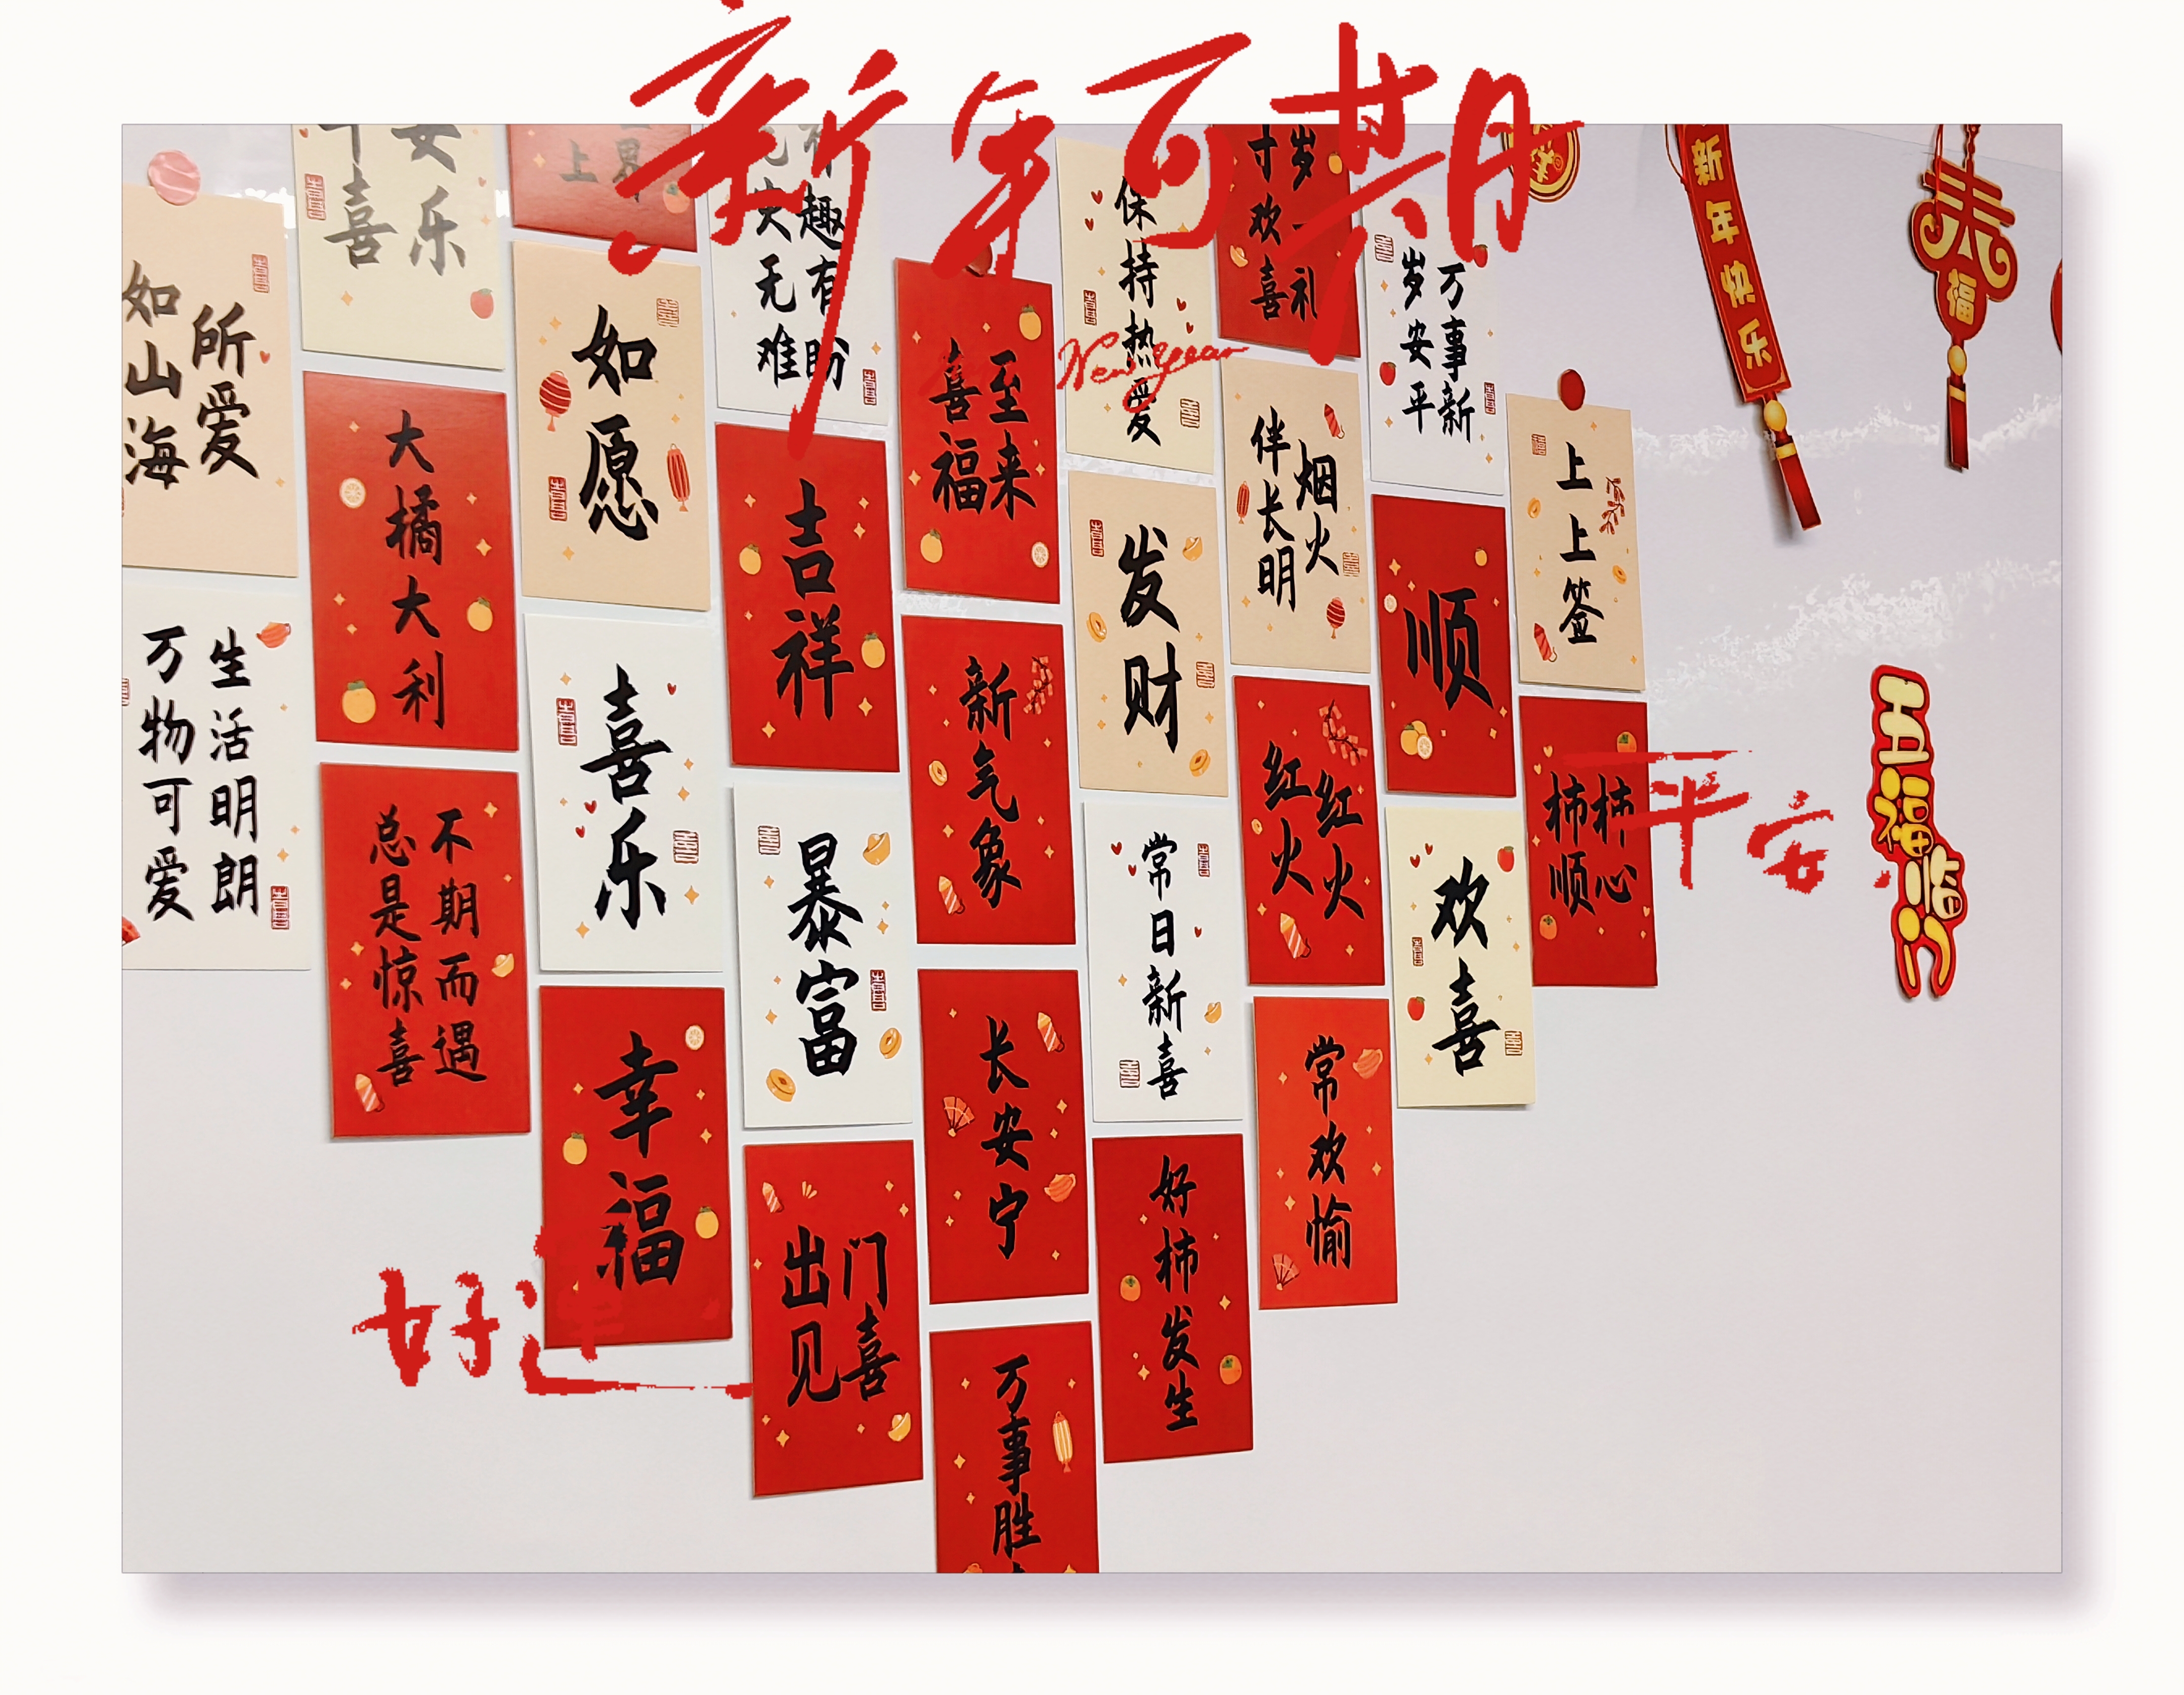 新年可期
New year
平安
好运
所爱
如山海
生活明朗
万物可爱
平安
喜乐
大橘大利
不期而遇
总是惊喜
上界
如愿
喜乐
幸福
趣有盼
无难
吉祥
暴富
出门
见喜
至来
喜福
新气象
长安宁
万事胜
保持热爱
发财
常日新喜
好柿发生
岁一礼
寸欢喜
烟火
伴长明
红红
火火
常欢愉
万事新
岁安平
顺
欢喜
上上签
柿柿
顺心
新年快乐
福
五福临门